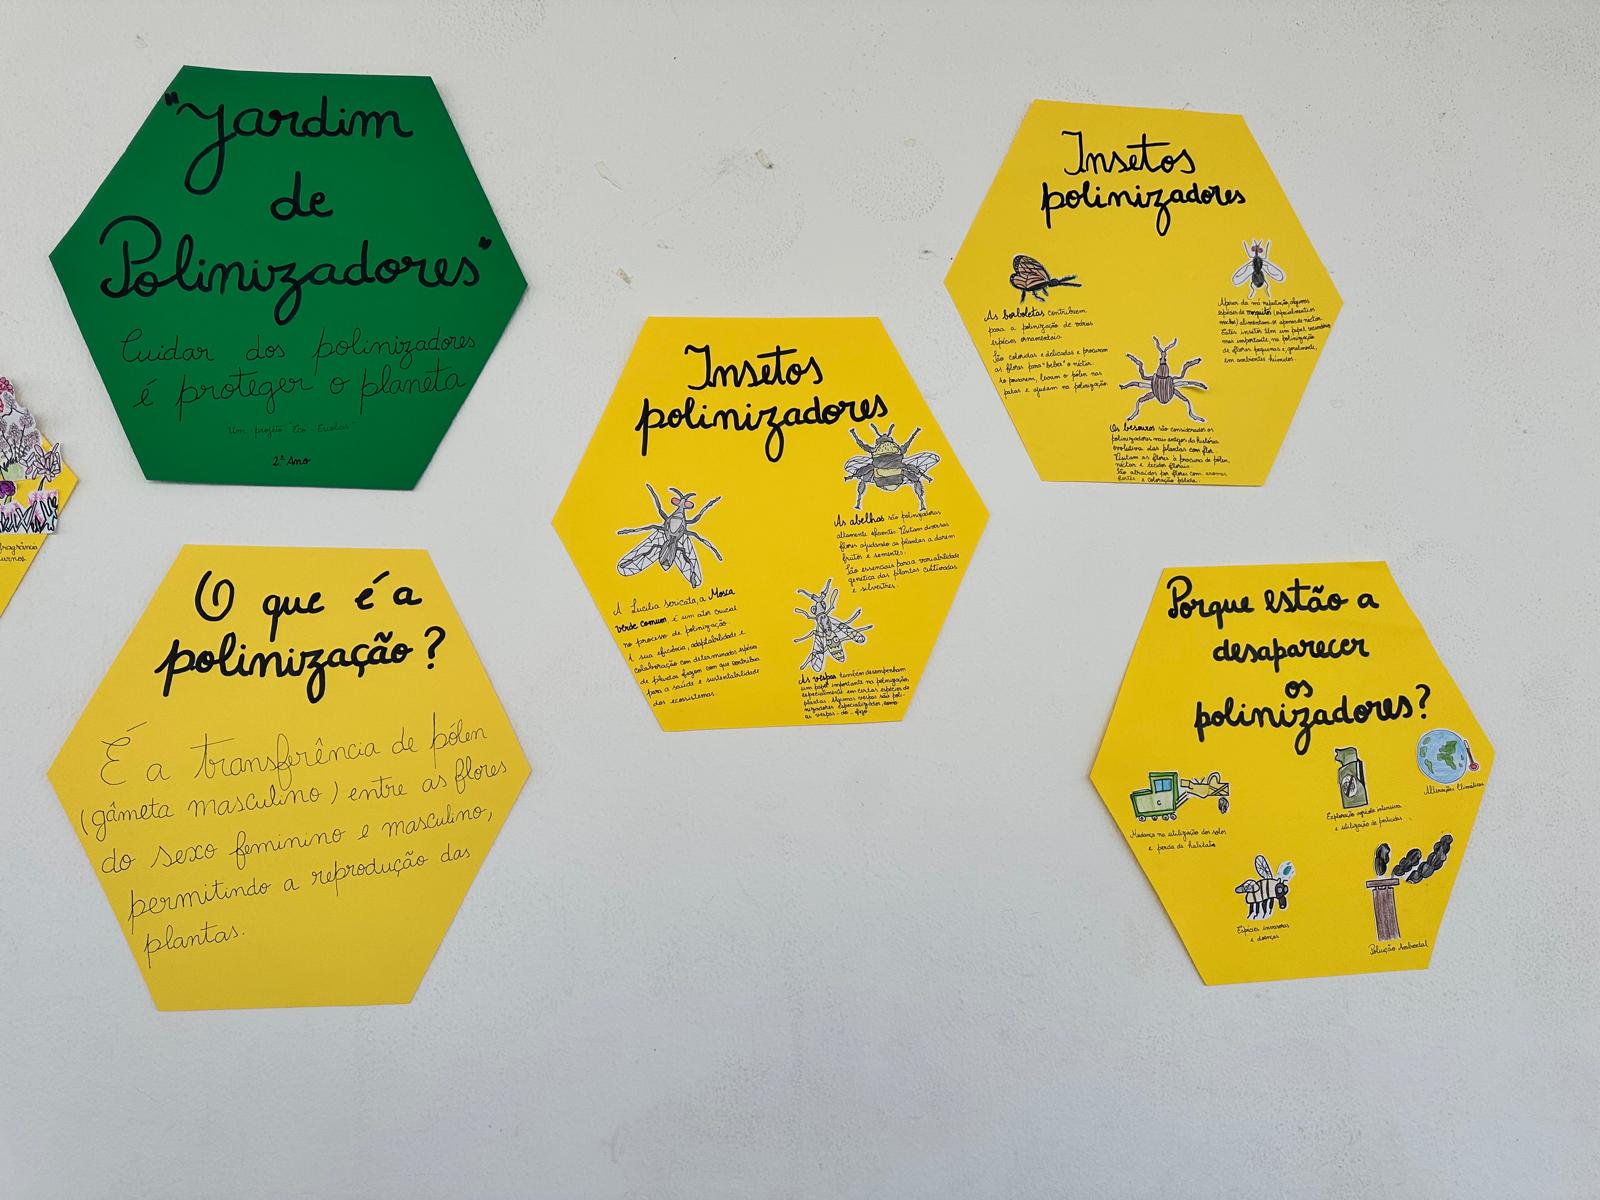 "Jardim
de
Polinizadores"
Cuidar dos polinizadores
é proteger o planeta
Um projeto "Eco-Escolas"
2.º Ano
O que é a
polinização?
É a transferência de pólen
(gâmeta masculino) entre as flores
do sexo feminino e masculino,
permitindo a reprodução das
plantas.
Insetos
polinizadores
A Lucilia sericata, a Mosca
verde comum, é um ator crucial
no processo de polinização.
A sua eficiência, adaptabilidade e
colaboração com determinadas espécies
de plantas fazem com que contribua
para a saúde e sustentabilidade
dos ecossistemas.
As abelhas são polinizadoras
altamente eficientes. Visitam diversas
flores ajudando as plantas a darem
frutos e sementes.
São essenciais para a variabilidade
genética das plantas cultivadas
e silvestres.
As vespas também desempenham
um papel importante na polinização,
especialmente em certas espécies de
plantas. Algumas vespas são poli-
nizadores especializados, como
as vespas-do-figo.
Insetos
polinizadores
As borboletas contribuem
para a polinização de várias
espécies ornamentais.
São coloridas e delicadas e procuram
as flores para "beber" o néctar.
Ao pousarem, levam o pólen nas
patas e ajudam na polinização.
Apesar da má reputação, algumas
espécies de mosquitos (especialmente os
machos) alimentam-se apenas de néctar.
Estes insetos têm um papel secundário,
mas importante, na polinização
de flores pequenas e, geralmente,
em ambientes húmidos.
Os besouros são considerados os
polinizadores mais antigos da história
evolutiva das plantas com flor.
Visitam as flores à procura de pólen,
néctar e tecidos florais.
São atraídos por flores com aromas
fortes e coloração pálida.
Porque estão a
desaparecer
os
polinizadores?
Mudança na utilização dos solos
e perda de habitats
Exploração agrícola intensiva
e utilização de pesticidas
Alterações Climáticas
Espécies invasoras
e doenças
Poluição Ambiental
fragrância